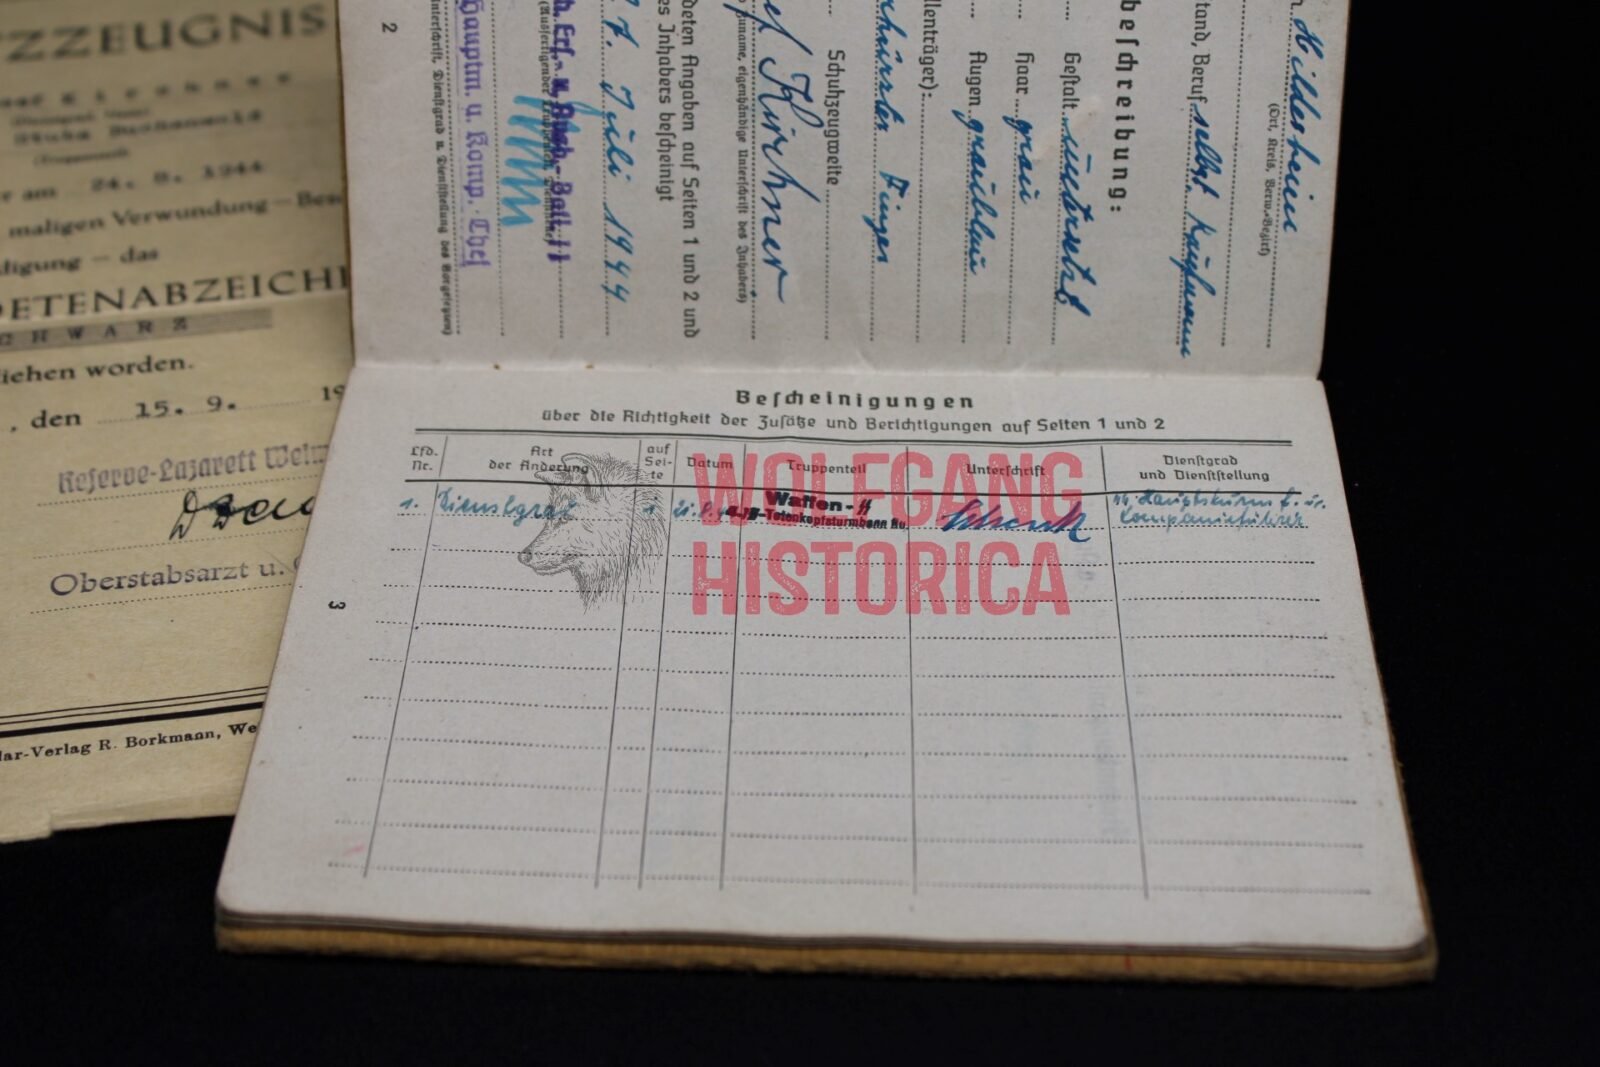 TZZEUGNIS
24. 8. 1944
maligen Verwundung – Besch
digung – das
DETENABZEICH
SCHWARZ
liehen worden.
, den 15. 9. 19
Reserve-Lazarett Weim
Oberstabsarzt u.
lar-Verlag R. Borkmann, We
Hildesheim
(Ort, Kreis, Verw.-Bezirk)
tand, Beruf selbst. Kaufmann
beschreibung:
Gestalt untersetzt
Haar grau
Augen graublau
llenträger):
Finger
Schuhzeugweite
Kirchner
Zuname, eigenhändige Unterschrift des Inhabers)
deten Angaben auf Seiten 1 und 2 und
es Inhabers bescheinigt
7. Juli 1944
Ers.- u. Ausb.-Batl.
(Ausfertigender Truppenteil, Dienststelle)
Hauptm. u. Komp.-Chef
Unterschrift, Dienstgrad u. Dienststellung des Vorgesetzten)
2
Bescheinigungen
über die Richtigkeit der Zusätze und Berichtigungen auf Seiten 1 und 2
Lfd. Nr.
Art der Änderung
auf Sei-te
Datum
Truppenteil
Unterschrift
Dienstgrad und Dienststellung
1. Dienstgrad
Waffen-SS
SS-Totenkopfsturmbann Bu.
Hauptsturmf. u.
Kompanieführer
3
WOLFGANG
HISTORICA